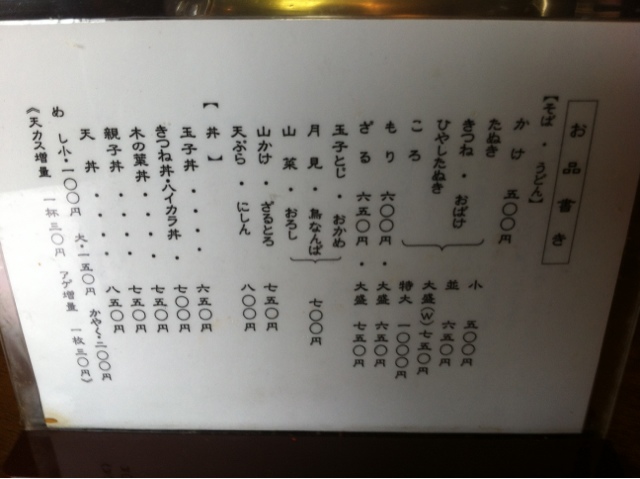 お品書き
【そば・うどん】
かけ 五〇〇円
たぬき
きつね・おばけ
ひやしたぬき
ころ
小 五〇〇円
並 六五〇円
大盛(W)七五〇円
特大 一〇〇〇円
もり 六〇〇円・大盛 六五〇円
ざる 六五〇円・大盛 七五〇円
玉子とじ・おかめ
月見・鳥なんば
山菜・おろし
七〇〇円
山かけ・ざるとろ 七五〇円
天ぷら・にしん 八〇〇円
【丼】
玉子丼・・・・ 六五〇円
きつね丼・ハイカラ丼・ 七〇〇円
木の葉丼・・・・ 七五〇円
親子丼・・・・ 七五〇円
天丼・・・・ 八五〇円
めし小・一〇〇円 大・一五〇円 かやく・二〇〇円
《天カス増量 一杯三〇円 アゲ増量 一枚三〇円》